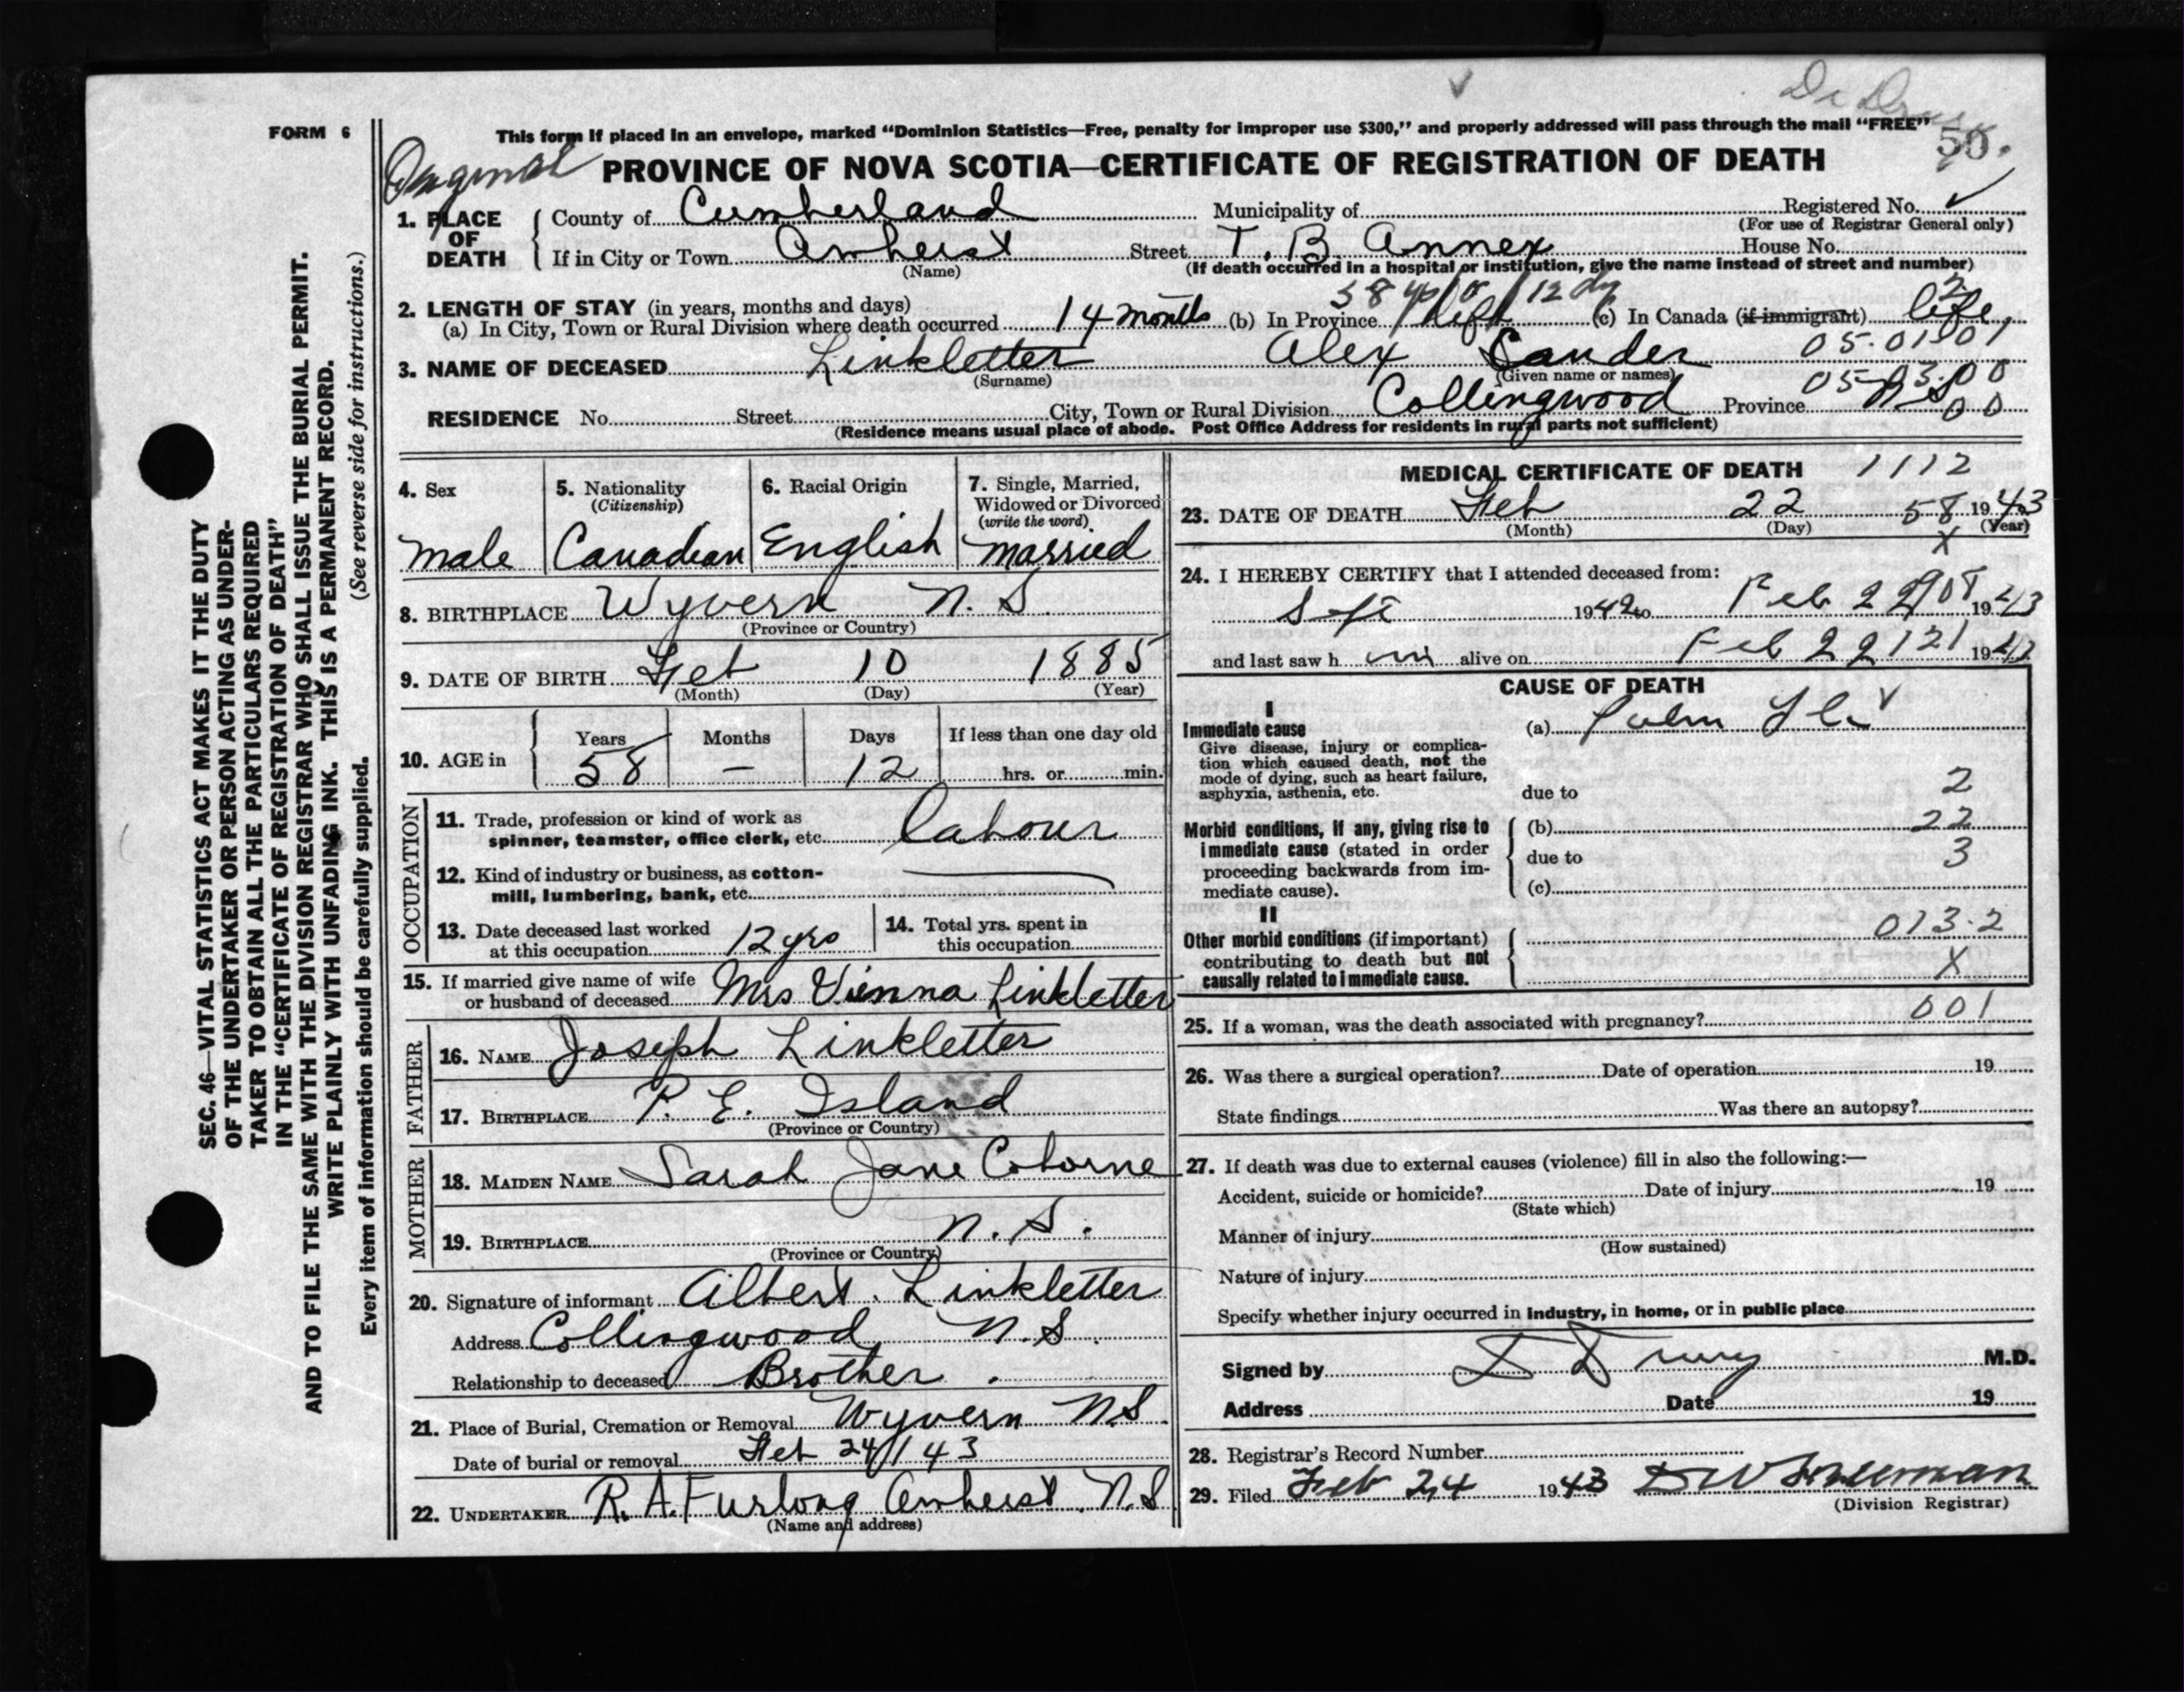 Dr Drury
FORM 6
This form if placed in an envelope, marked "Dominion Statistics—Free, penalty for improper use $300," and properly addressed will pass through the mail "FREE"
50.
Original
PROVINCE OF NOVA SCOTIA—CERTIFICATE OF REGISTRATION OF DEATH
1. PLACE OF DEATH
County of Cumberland Municipality of Registered No.
(For use of Registrar General only)
If in City or Town Amherst Street T. B. Annex House No.
(Name) (If death occurred in a hospital or institution, give the name instead of street and number)
2. LENGTH OF STAY (in years, months and days)
(a) In City, Town or Rural Division where death occurred 14 months (b) In Province life (c) In Canada (if immigrant) life
3. NAME OF DECEASED Linkletter Alex Sander 05.01.01
(Surname) (Given name or names) 05.03.00
RESIDENCE No. Street City, Town or Rural Division Collingwood Province N S 00
(Residence means usual place of abode. Post Office Address for residents in rural parts not sufficient)
SEC. 46—VITAL STATISTICS ACT MAKES IT THE DUTY
OF THE UNDERTAKER OR PERSON ACTING AS UNDER-
TAKER TO OBTAIN ALL THE PARTICULARS REQUIRED
IN THE "CERTIFICATE OF REGISTRATION OF DEATH"
AND TO FILE THE SAME WITH THE DIVISION REGISTRAR WHO SHALL ISSUE THE BURIAL PERMIT.
WRITE PLAINLY WITH UNFADING INK. THIS IS A PERMANENT RECORD.
Every item of information should be carefully supplied. (See reverse side for instructions.)
4. Sex
male
5. Nationality
(Citizenship)
Canadian
6. Racial Origin
English
7. Single, Married,
Widowed or Divorced
(write the word)
married
8. BIRTHPLACE Wyvern N. S.
(Province or Country)
9. DATE OF BIRTH Feb 10 1885
(Month) (Day) (Year)
10. AGE in
Years Months Days If less than one day old
58 — 12 hrs. or min.
OCCUPATION
11. Trade, profession or kind of work as
spinner, teamster, office clerk, etc. labour
12. Kind of industry or business, as cotton-
mill, lumbering, bank, etc.
13. Date deceased last worked
at this occupation 12 yrs
14. Total yrs. spent in
this occupation
15. If married give name of wife
or husband of deceased Mrs Vienna Linkletter
FATHER
16. NAME Joseph Linkletter
17. BIRTHPLACE P. E. Island
(Province or Country)
MOTHER
18. MAIDEN NAME Sarah Jane Coborne
19. BIRTHPLACE N. S.
(Province or Country)
20. Signature of informant Albert Linkletter
Address Collingwood N. S.
Relationship to deceased Brother
21. Place of Burial, Cremation or Removal Wyvern N S
Date of burial or removal Feb 24/43
22. UNDERTAKER R. A. Furlong Amherst. N. S
(Name and address)
MEDICAL CERTIFICATE OF DEATH 1112
23. DATE OF DEATH Feb 22 58 1943
(Month) (Day) (Year)
X
24. I HEREBY CERTIFY that I attended deceased from:
Sept 1942 to Feb 22 1943
and last saw h im alive on Feb 22 121 1943
CAUSE OF DEATH
I
Immediate cause (a) Pulm Tbc
Give disease, injury or complica-
tion which caused death, not the
mode of dying, such as heart failure,
asphyxia, asthenia, etc. due to 2
Morbid conditions, if any, giving rise to (b) 22
immediate cause (stated in order due to 3
proceeding backwards from im-
mediate cause). (c)
II
013.2
Other morbid conditions (if important)
contributing to death but not X
causally related to immediate cause.
25. If a woman, was the death associated with pregnancy? 001
26. Was there a surgical operation? Date of operation 19
State findings Was there an autopsy?
27. If death was due to external causes (violence) fill in also the following:—
Accident, suicide or homicide? Date of injury 19
(State which)
Manner of injury
(How sustained)
Nature of injury
Specify whether injury occurred in industry, in home, or in public place
Signed by D Drury M.D.
Address Date 19
28. Registrar's Record Number
29. Filed Feb 24 1943
(Division Registrar)